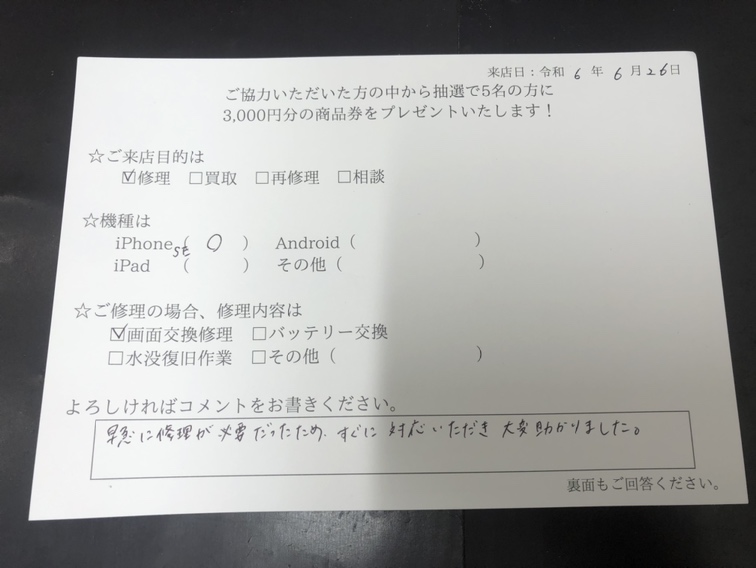 来店日：令和 6 年 6 月 26日
ご協力いただいた方の中から抽選で5名の方に
3,000円分の商品券をプレゼントいたします！
☆ご来店目的は
☑修理 □買取 □再修理 □相談
☆機種は
iPhone SE ( ○ ) Android ( )
iPad ( ) その他 ( )
☆ご修理の場合、修理内容は
☑画面交換修理 □バッテリー交換
□水没復旧作業 □その他 ( )
よろしければコメントをお書きください。
早急に修理が必要だったため、すぐに対応いただき大変助かりました。
裏面もご回答ください。